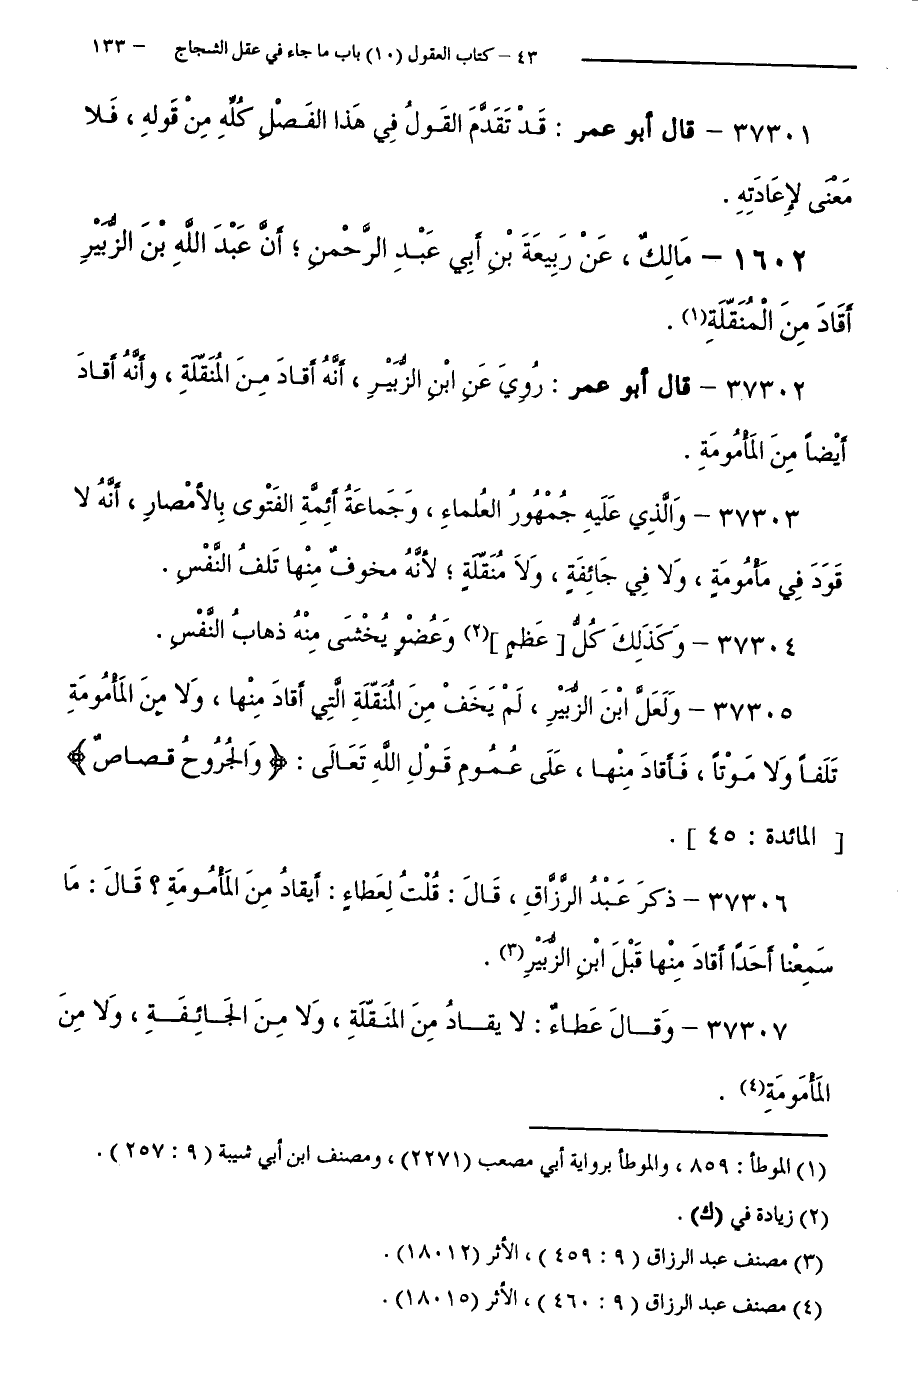 ٤٣ – كتاب العقول (١٠) باب ما جاء في عقل الشجاج – ١٣٣
٣٧٣٠١ – قال أبو عمر : قَدْ تَقَدَّمَ القَولُ فِي هَذا الفَصْلِ كُلِّهِ مِنْ قَولهِ ، فَلا
مَعْنَى لإِعَادَتِهِ .
١٦٠٢ – مَالِكٌ ، عَنْ رَبِيعَةَ بْنِ أَبِي عَبْدِ الرَّحْمنِ ؛ أَنَّ عَبْدَ اللَّهِ بْنَ الزُّبَيْرِ
أَقَادَ مِنَ الْمُنَقِّلَةِ(١) .
٣٧٣٠٢ – قال أبو عمر : رُوِيَ عَنِ ابْنِ الزُّبَيْرِ ، أَنَّهُ أَقادَ مِنَ المُنَقِّلَةِ ، وأَنَّهُ أَقادَ
أَيْضاً مِنَ المَأْمُومَةِ .
٣٧٣٠٣ – وَالَّذِي عَلَيهِ جُمْهُورُ العُلماءِ ، وَجَماعَةُ أَئِمَّةِ الفَتْوى بِالأَمْصارِ ، أَنَّهُ لا
قَوَدَ فِي مَأْمُومَةٍ ، وَلا فِي جَائِفَةٍ ، وَلاَ مُنَقِّلَةٍ ؛ لأَنَّهُ مخوفٌ مِنْها تَلفُ النَّفْسِ .
٣٧٣٠٤ – وَكَذَلِكَ كُلُّ [ عَظمٍ ](٢) وَعُضْوٍ يُخْشَى مِنْهُ ذهابُ النَّفْسِ .
٣٧٣٠٥ – وَلَعَلَّ ابْنَ الزُّبَيْرِ ، لَمْ يَخَفْ مِنَ المُنَقِّلَةِ الَّتِي أَقادَ مِنْها ، وَلا مِنَ المَأْمُومَةِ
تَلَفاً وَلا مَوْتاً ، فَأَقادَ مِنْها ، عَلَى عُمُومِ قَوْلِ اللَّهِ تَعَالَى : ﴿ وَالجُرُوحُ قصاصٌ ﴾
[ المائدة : ٤٥ ] .
٣٧٣٠٦ – ذكرَ عَبْدُ الرَّزَّاقِ ، قَالَ : قُلْتُ لِعَطاءٍ : أَيقادُ مِنَ المَأْمُومَةِ ؟ قَالَ : مَا
سَمِعْنا أَحَدًا أَقادَ مِنْها قَبْلَ ابْنِ الزُّبَيْرِ(٣) .
٣٧٣٠٧ – وَقالَ عَطاءٌ : لا يقادُ مِنَ المَنَقِّلَةِ ، وَلا مِنَ الجَائِفَةِ ، وَلا مِنَ
المَأْمَومَةِ(٤) .
(١) الموطأ : ٨٥٩ ، والموطأ برواية أبي مصعب (٢٢٧١) ، ومصنف ابن أبي شيبة ( ٩ : ٢٥٧ ) .
(٢) زيادة في (ك) .
(٣) مصنف عبد الرزاق ( ٩ : ٤٥٩ ) ، الأثر (١٨٠١٢) .
(٤) مصنف عبد الرزاق ( ٩ : ٤٦٠ ) ، الأثر (١٨٠١٥) .